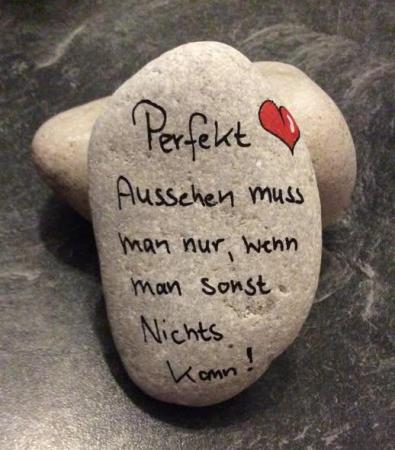 Perfekt
Aussehen muss
man nur, wenn
man sonst
Nichts
kann!